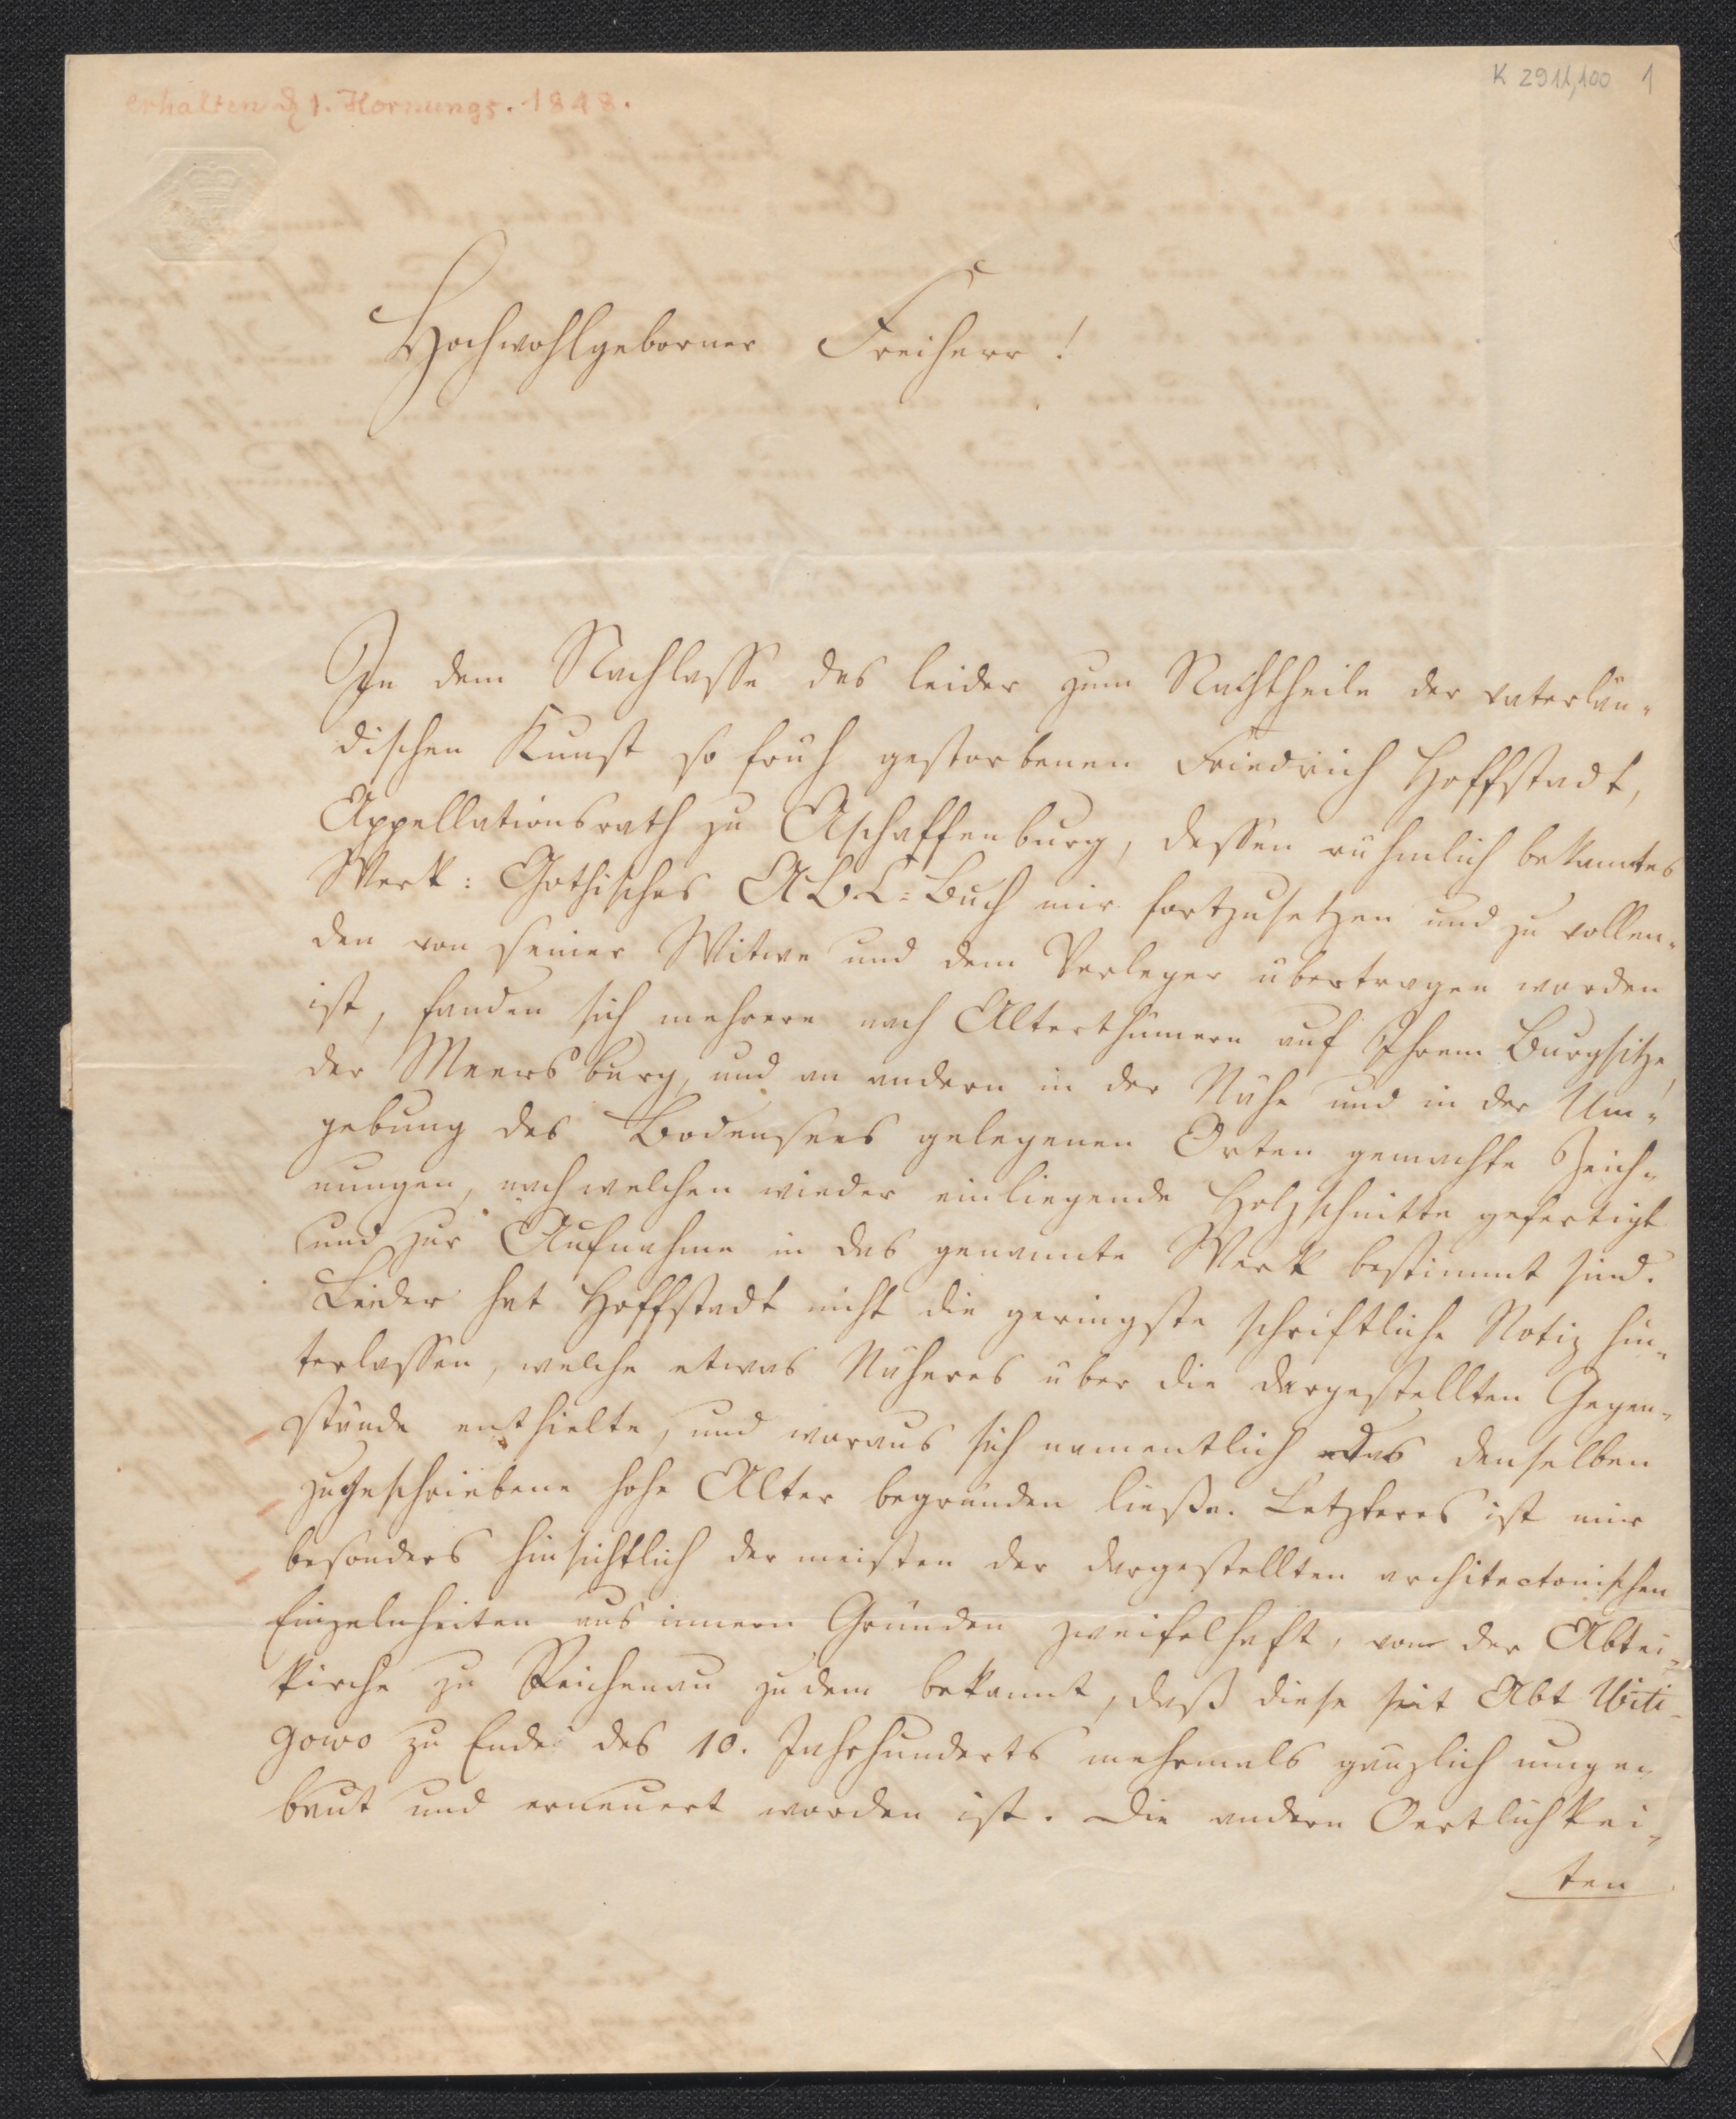 erhalten d 1. Hornungs. 1848.
K 2911,100 1
Hochwohlgeborner Freiherr!
In dem Nachlasse des leider zum Nachtheile der vaterlän-
dischen Kunst so früh gestorbenen Friedrich Hoffstadt,
Appellationsrath zu Aschaffenburg, dessen rühmlich bekanntes
Werk: Gothisches A.B.C-Buch mir fortzusetzen und zu vollen-
den von seiner Witwe und dem Verleger übertragen worden
ist, fanden sich mehrere nach Alterthümern auf Ihrem Burgsitze,
der Meersburg, und an andern in der Nähe und in der Um-
gebung des Bodensees gelegenen Orten gemachte Zeich-
nungen, nach welchen wieder einliegende Holzschnitte gefertigt
und zur Aufnahme in das genannte Werk bestimmt sind.
Leider hat Hoffstadt nicht die geringste schriftliche Notiz hin-
terlassen, welche etwas Näheres über die dargestellten Gegen-
stände enthielte, und woraus sich namentlich das denselben
zugeschriebene hohe Alter begründen ließe. Letzteres ist mir
besonders hinsichtlich der meisten der dargestellten architectonischen
Einzelnheiten aus innern Gründen zweifelhaft, von der Abtei-
kirche zu Reichenau zudem bekannt, daß diese seit Abt Witi-
gowo zu Ende des 10. Jahrhunderts mehrmals gänzlich umge-
baut und erneuert worden ist. Die andern Oertlichkei-
ten